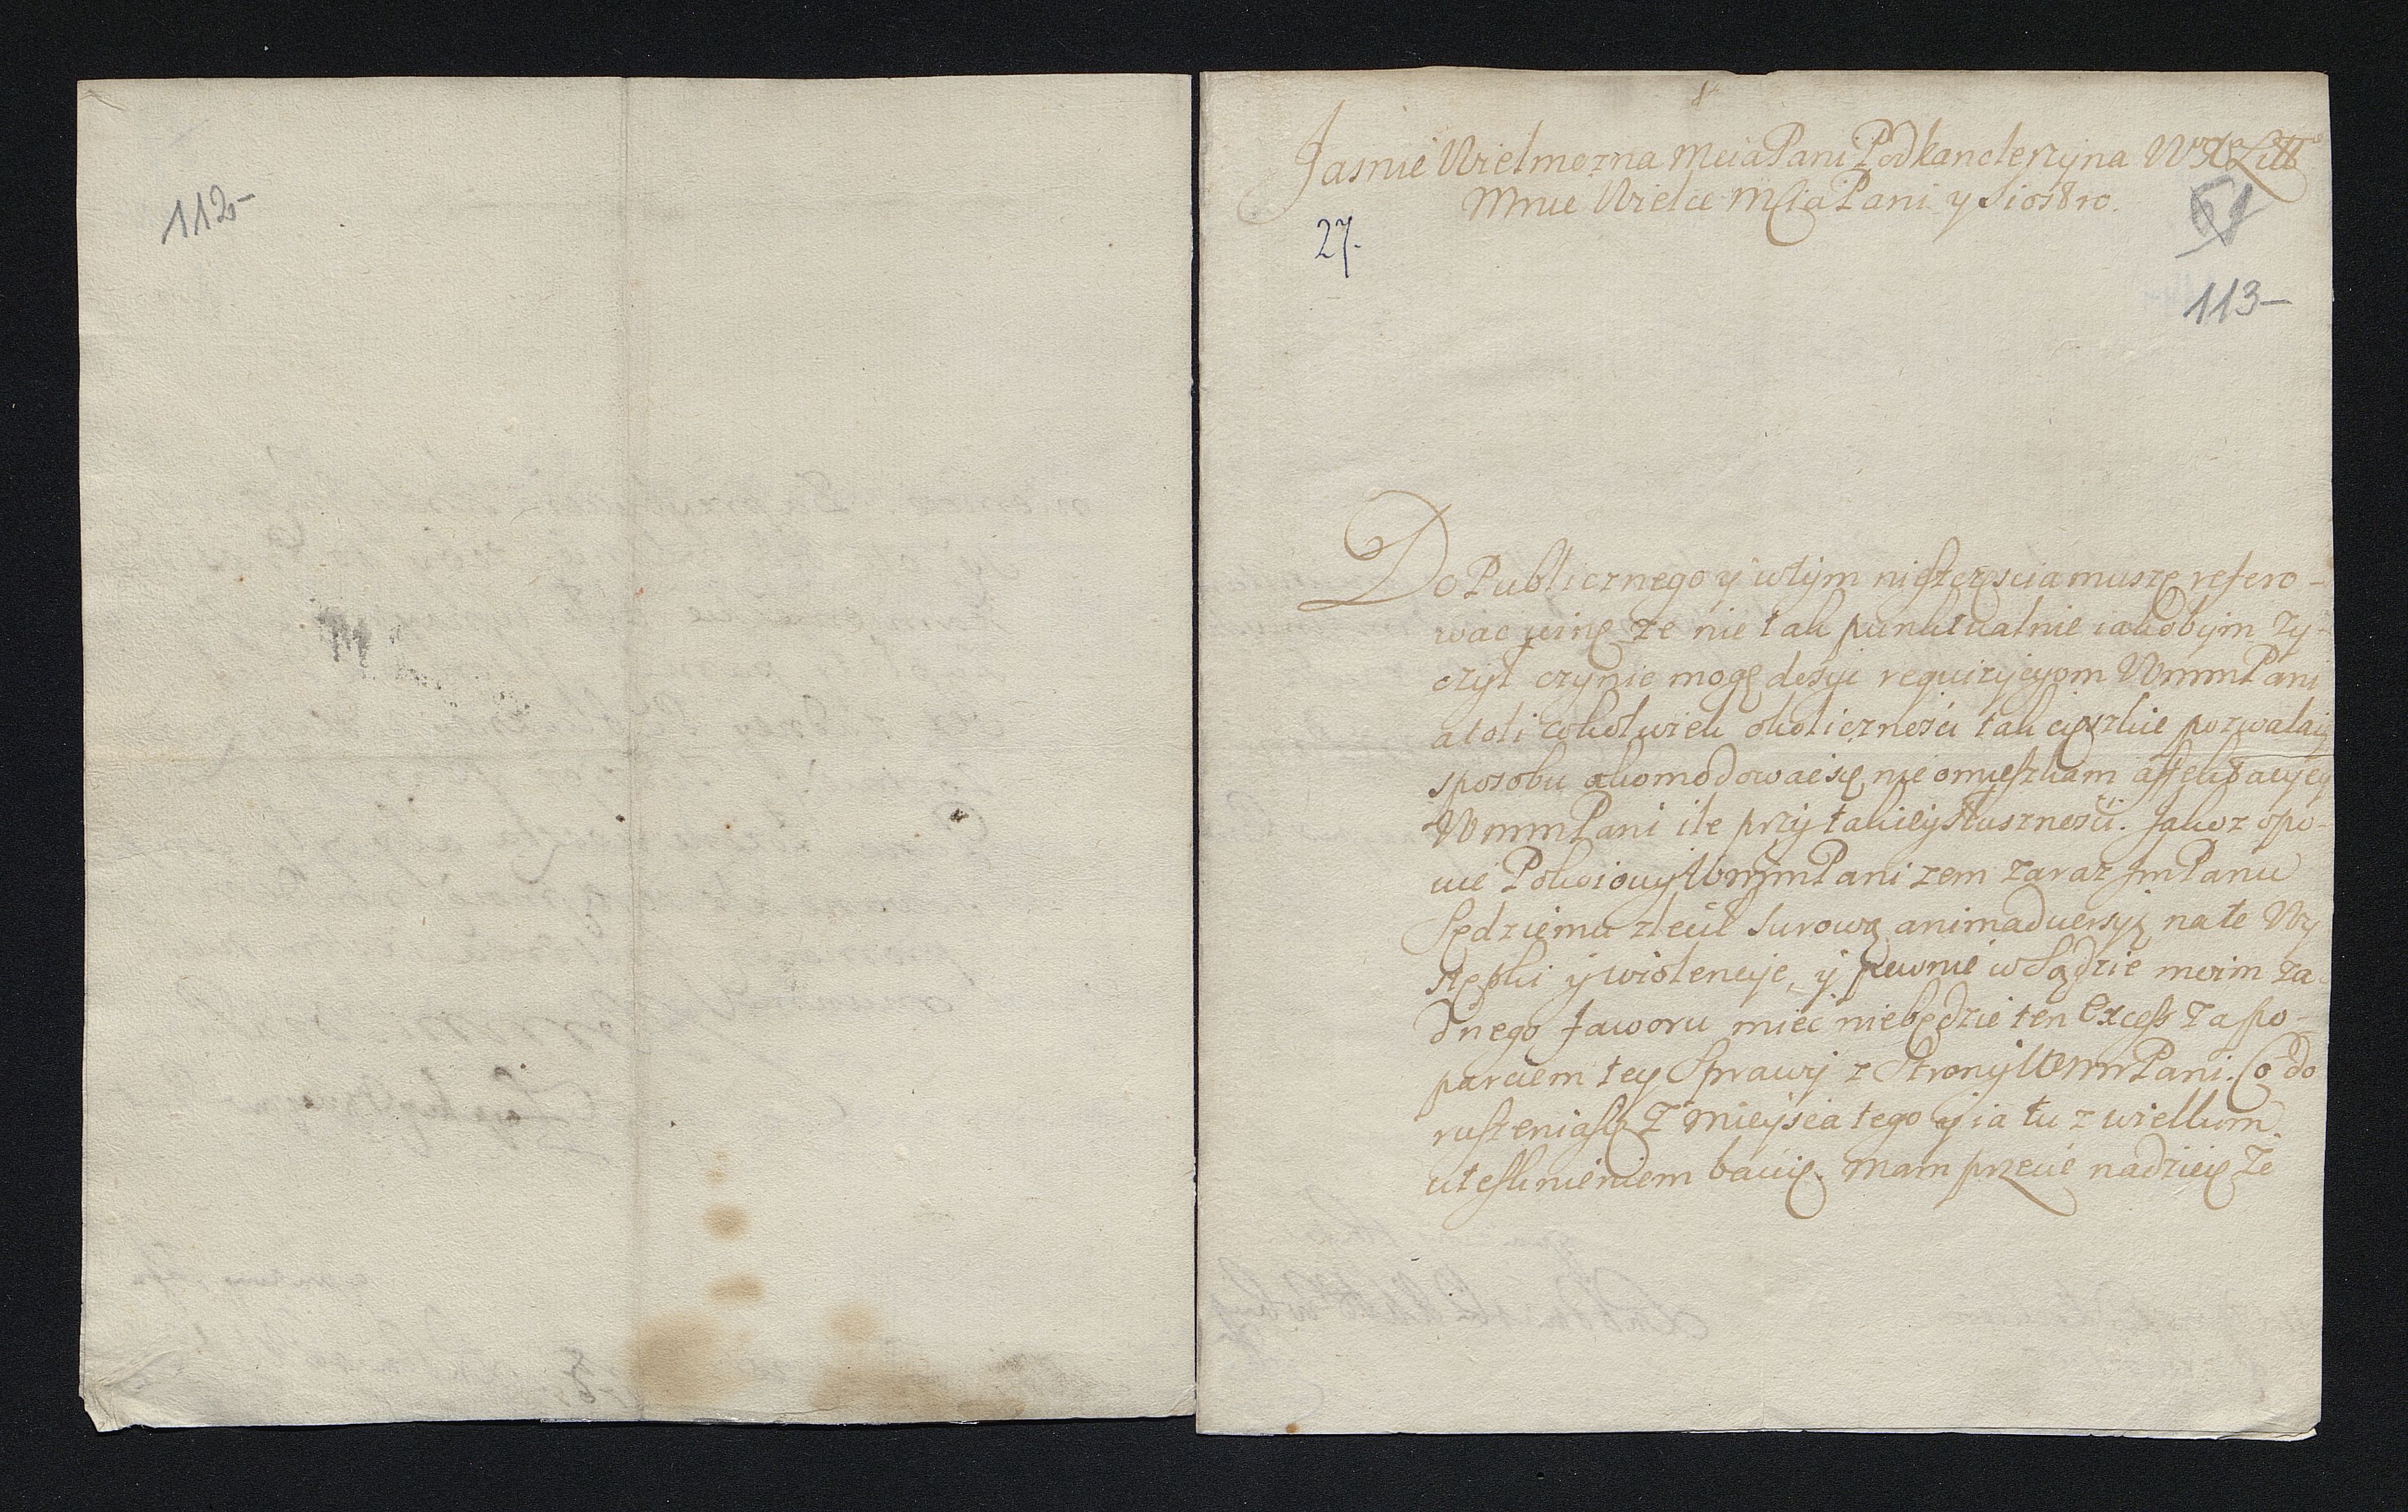 112-
Jasnie Wielmozna Mcia Pani Podkanclerzyna W° X° Litt°
Mnie Wielce Mscia Pani y Siostro.
27.
61
113-
Do Publicznego y wtym niesczęscia muszę refero-
wac winę ze nie tak punktualnie iakobym zy-
czył czynic mogę dosyc requizycyom WmmPani
atoli cokolwiek okolicznosci tak cięszkie pozwalaią
sposobu akomodowac się nie omieszkam affektacyey
WmmPani ile przy takiey słusznosci. Jakoz opo-
wie Pokoiowy WmmPani zem zaraz JmPanu
Sędziemu zlecił surową animadwersyą na te Wy
stępki y wiolencye, y pewnie w Sądzie moim za-
dnego faworu miec niebędzie ten Excess za po-
parciem tey Sprawy z Strony WmmPani. Co do
ruszenia się z mieysca tego y ia tu z wielkim
utesknieniem bawię. Mam przecie nadzieię ze